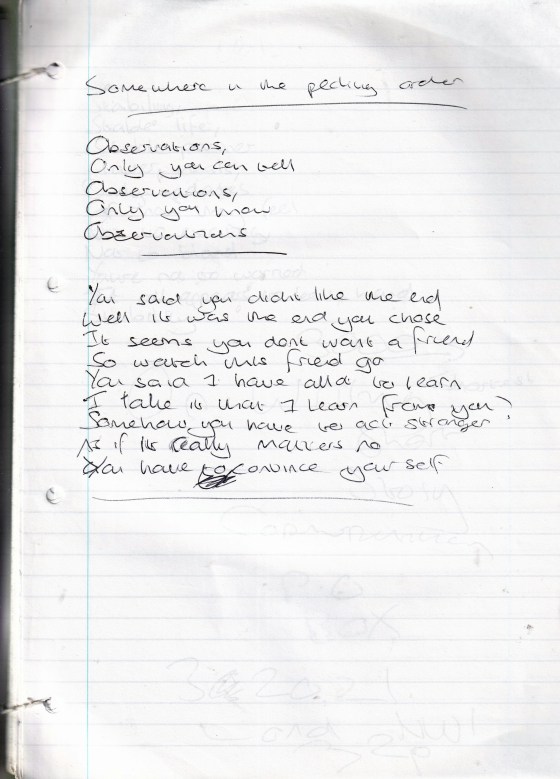 Somewhere in the pecking order
Observations,
Only you can tell
Observations,
Only you know
Observations
You said you didnt like the end
Well its was the end you chose
It seems you dont want a friend
So watch this friend go
You said I have alot to learn
I take it that I learn from you?
Somehow you have to act stronger
As if its really matters no
You have to convince yourself